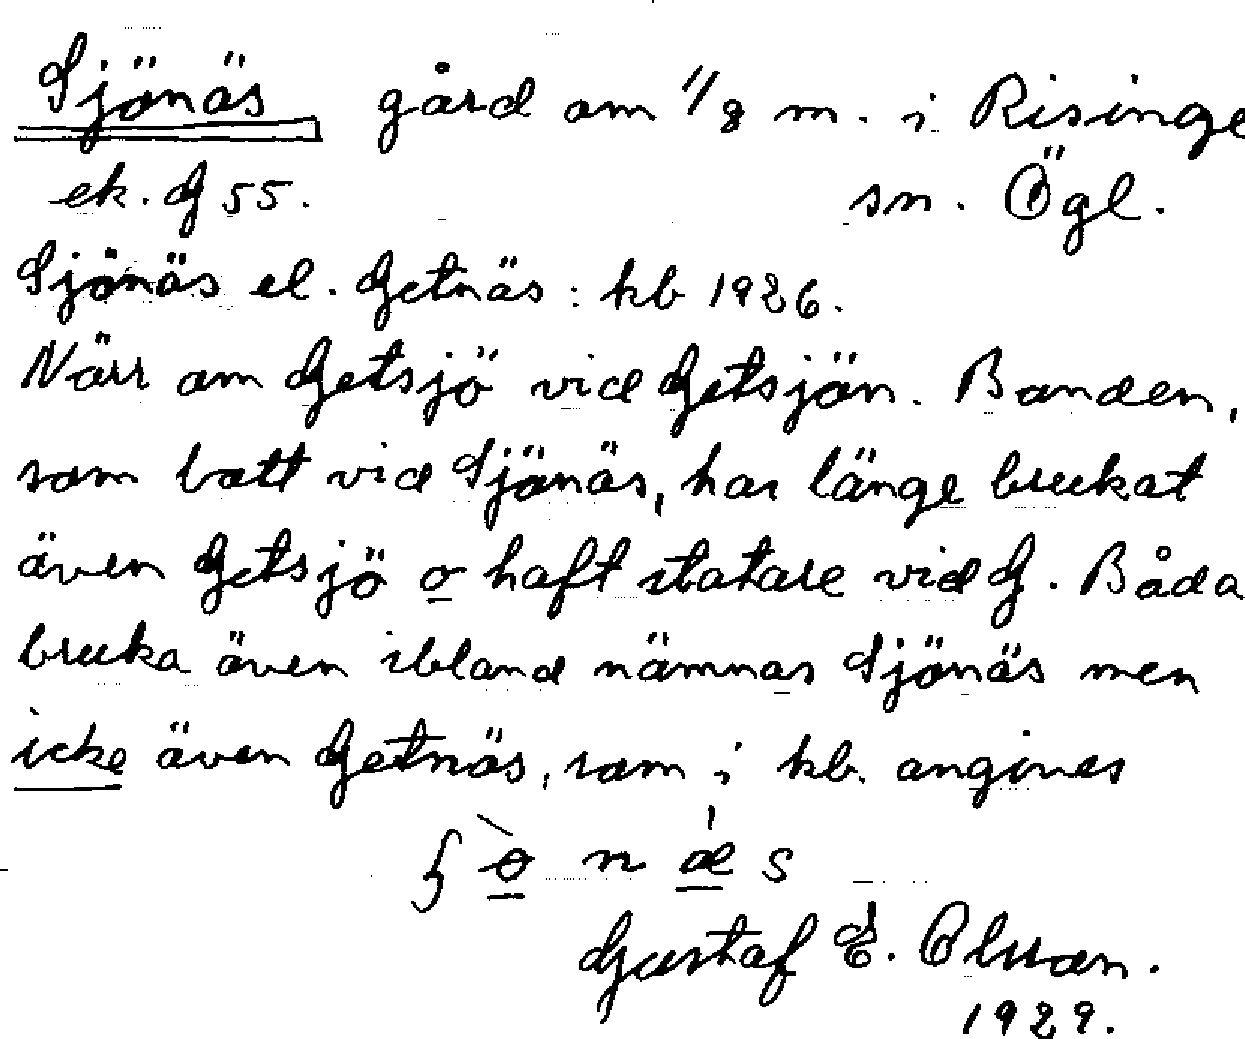 Sjönäs gård om 1/8 m. i Risinge
ek. G 55. sn. Ögl.
Sjönäs el. Getnäs: kb 1926.
Norr om Getsjö vid Getsjön. Bonden,
som bott vid Sjönäs, har länge brukat
även Getsjö o haft statare vid G. Båda
bruka även ibland nämnas Sjönäs men
icke även Getnäs, som i kb. angives
n æ s
Gustaf E. Olsson.
1929.